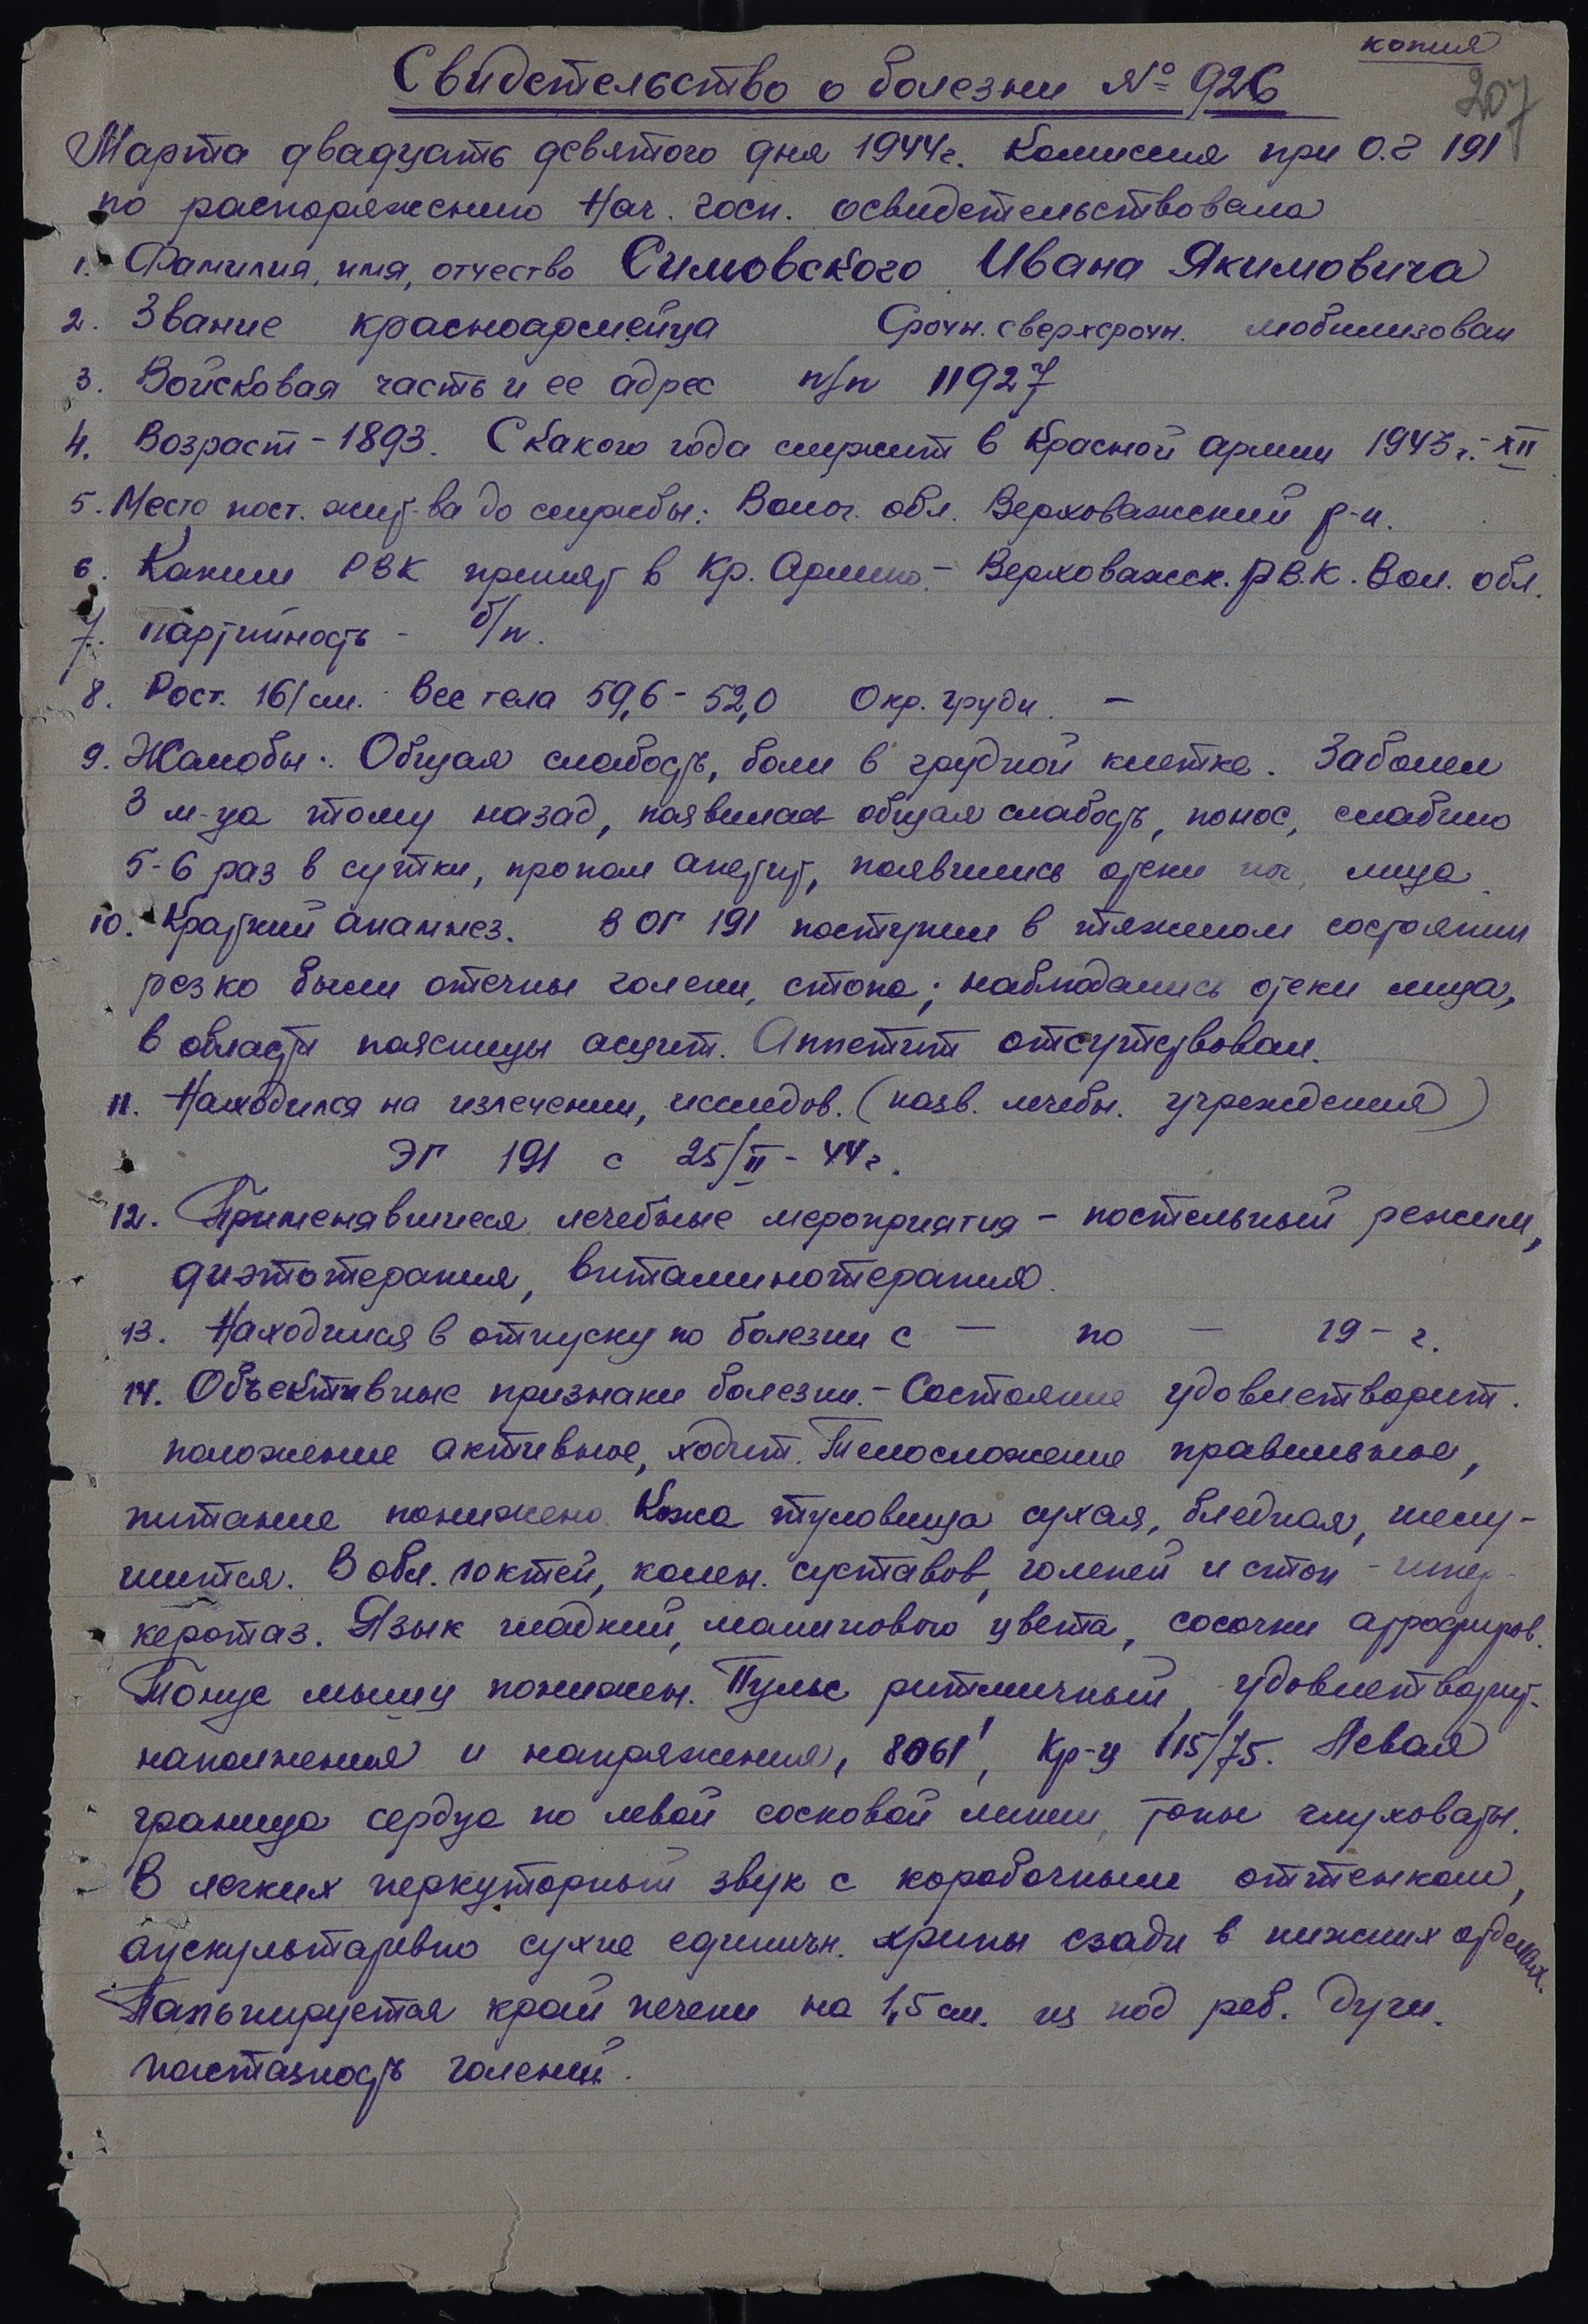 копия
207
Свидетельство о болезни № 926
Марта двадцать девятого дня 1944г. Комиссия при О.Г 191
по распоряжению Нач. госп. освидетельствовала
1. Фамилия, имя, отчество Симовского Ивана Якимовича
2. Звание красноармейца Срочн. сверхсрочн. мобилизован
3. Войсковая часть и ее адрес п/п 11927
4. Возраст - 1893. С какого года служит в Красной армии 1943 г. - XII
5. Место пост. жит-ва до службы: Волог. обл. Верховажский р-н.
6. Каким РВК принят в Кр. Армию - Верховажск. РВ.К. Вол. обл.
7. партийность - б/п.
8. Рост. 161 см. Вес тела 59,6 - 52,0 Окр. груди. —
9. Жалобы: Общая слабость, боли в грудной клетке. Заболел
3 м-ца тому назад, появилась общая слабость, понос, слабило
5-6 раз в сутки, пропал апетит, появились отеки ног, лица.
10. Краткий анамнез. В ОГ 191 поступил в тяжелом состоянии
резко были отечны голени, стопа; наблюдались отеки лица,
в области поясницы асцит. Аппетит отсутствовал.
11. Находился на излечении, исследов. (назв. лечебн. учреждения)
ЭГ 191 с 25/II - 44 г.
12. Применявшиеся лечебные мероприятия - постельный режим,
диэтотерапия, витаминотерапия.
13. Находился в отпуску по болезни с — по — 19 - г.
14. Объективные признаки болезни. - Состояние удовлетворит.
положение активное, ходит. Телосложение правильное,
питание понижено. Кожа туловища сухая, бледная, шелу-
шится. В обл. локтей, колен. суставов, голеней и стоп - гипер-
кератоз. Язык гладкий, малинового цвета, сосочки атрофиров.
Тонус мышц понижен. Пульс ритмичный, удовлетворит.
наполнения и напряжения, 80 61', Кр-ц 115/75. Левая
граница сердца по левой сосковой линии, тоны глуховаты.
В легких перкуторный звук с коробочным оттенком,
аускультаривно сухие единичн. хрипы сзади в нижних отделах.
Пальпируется край печени на 1,5 см. из под реб. дуги.
пастазность голеней.